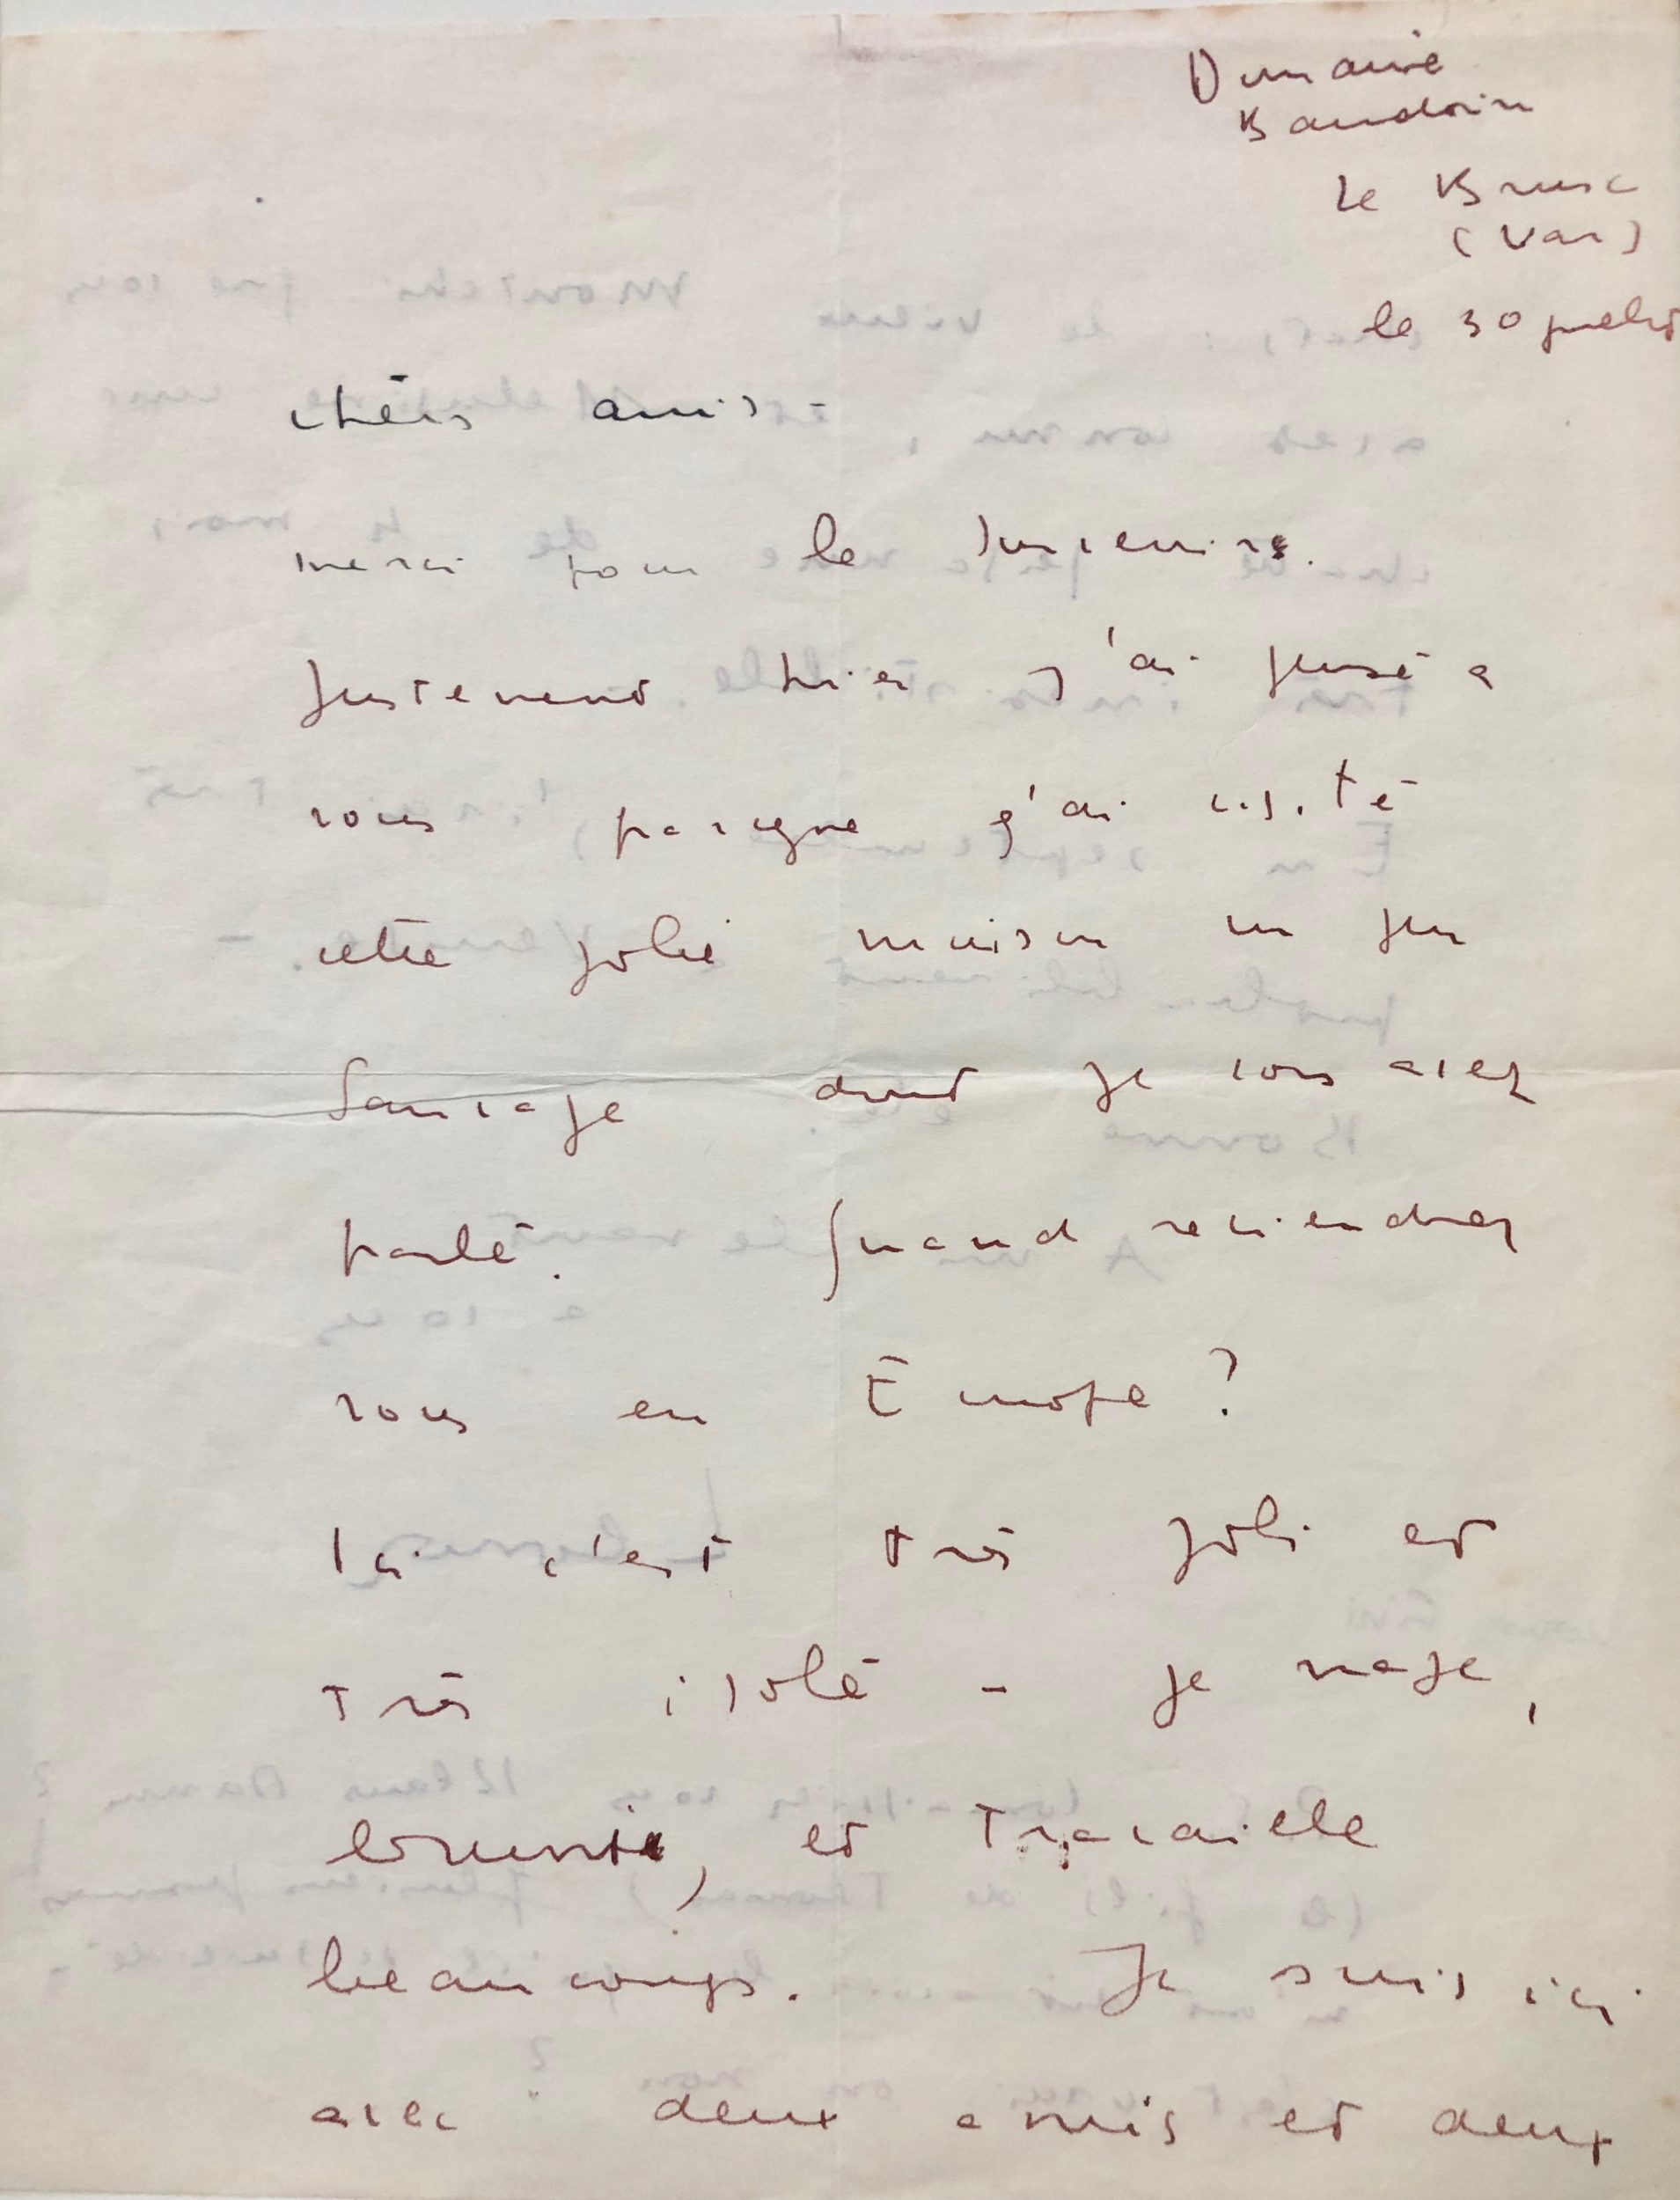 Domaine
Baudoin
Le Brusc
(Var)
le 30 juillet
chers amis -
merci pour le souvenir.
Justement hier j'ai pensé a
vous parceque j'ai visité
cette jolie maison un peu
Sauvage dont je vous avez
parlé. Quand reviendrez
vous en Europe ?
Ici c'est très joli et
très isolé - je nage,
brunie, et Travaille
beaucoup. Je suis ici
avec deux amis et deux